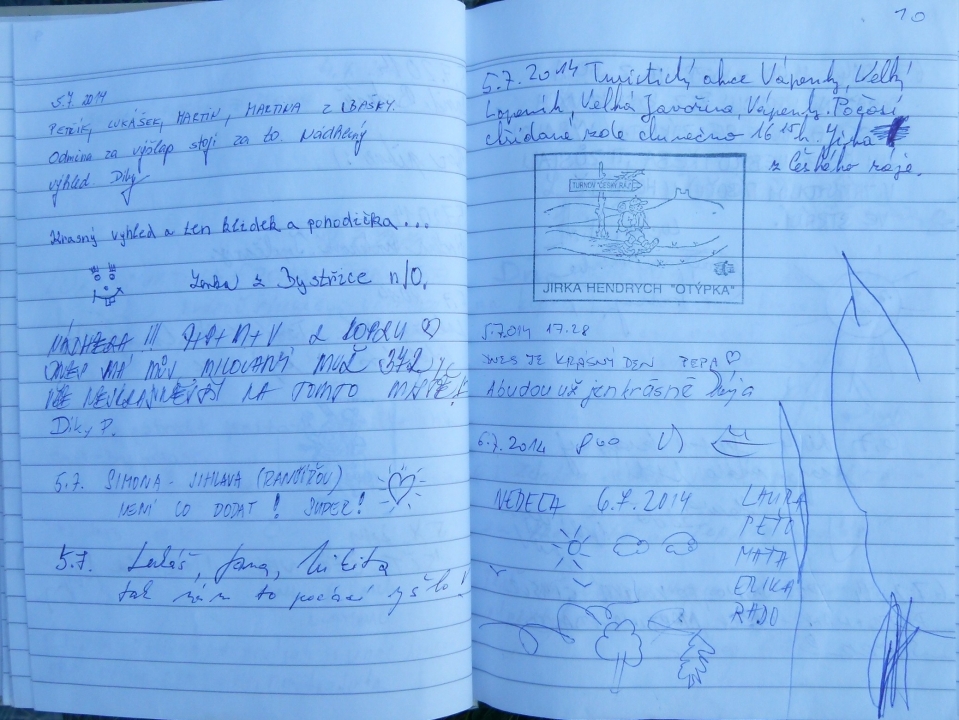 5.7. 2014
LUKÁŠEK, MARTIN, MARTINA z
Odměna za výšlap stojí za to. Nádherný
výhled Díky
Krásný výhled a ten klídek a pohodička...
Lenka z Bystřice n/O.
NÁDHERA !!! 
MŮJ MILOVANÝ MUŽ
NA TOMTO
Díky P.
5.7. SIMONA - JIHLAVA (RANČÍŘOV)
NENÍ CO DODAT! SUPER!
5.7. Lukáš, Jana, Nikita
tak nám to počasí vyšlo
10
5.7. 2014 Turistický akce Vápenky, Velký
Lopeník, Velká Javořina, Vápenky. Počasí
střídavé, zde slunečno 16 15 h. Jirka
z českého ráje.
TURNOV "ČESKÝ RÁJ"
JIRKA HENDRYCH "OTÝPKA"
17.28
JE KRÁSNÝ DEN PEPA
A budou už jen krásné
6.7.2014
NEDEĽA 6.7.2014 LAURA
PEŤO
MAŤA
ERIKA
RADO